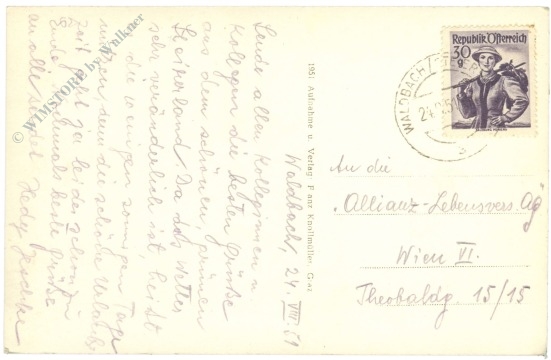 Waldbach, 24. VIII 51
Sende allen Kolleginnen u.
Kollegen die besten Grüße
aus dem schönen, grünen
Steirerland. Da das Wetter
sehr veränderlich ist heißt
die wenigen sonnigen Tage
nützen, denn die schöne Urlaubs
zeit geht ja leider schon zu
Ende. Nochmals beste Grüße
an alle
Hedy
1951 Aufnahme u. Verlag Franz Knollmüller, Graz
Republik Österreich
30
g
WALDBACH
An die
„Allianz-Lebensvers. Ag"
Wien VI.
Theobaldg. 15/15
© WIMSTORE by Walkner